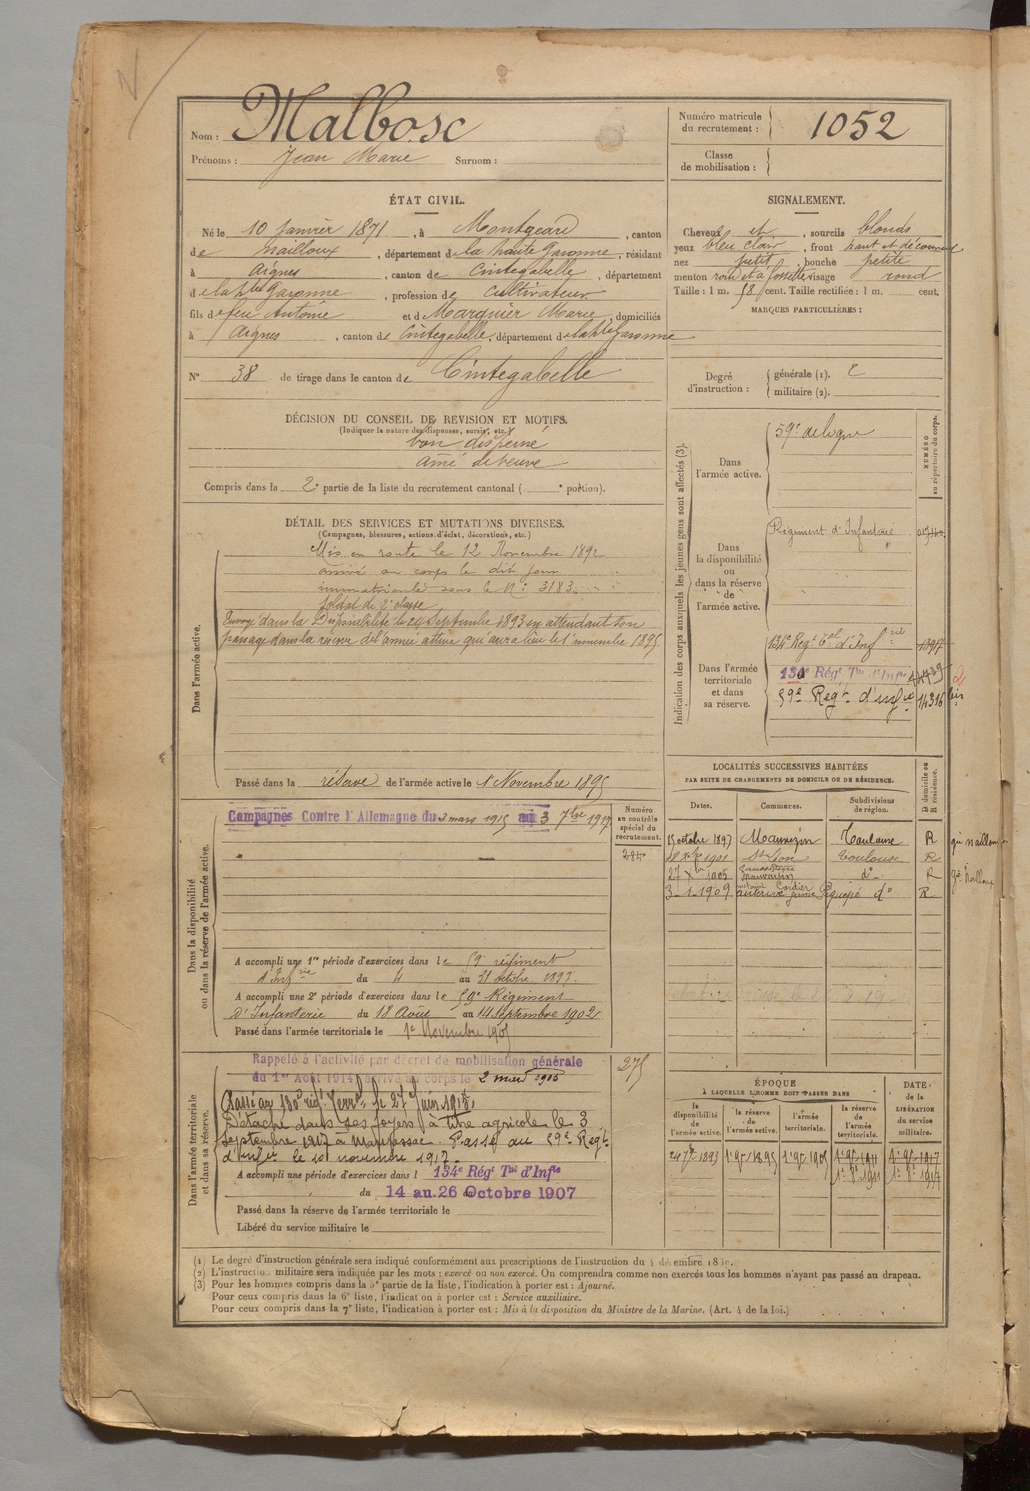 N
Nom : Malbosc
Prénoms : Jean Marie Surnom :
Numéro matricule du recrutement : 1052
Classe de mobilisation :
ÉTAT CIVIL.
Né le 10 Janvier 1871, à Montgeard, canton
de Nailloux, département de la haute Garonne, résidant
à Aignes, canton de Cintegabelle, département
de la hte Garonne, profession de Cultivateur
fils de feu Antoine et de Marquier Marie, domiciliés
à Aignes, canton de Cintegabelle, département de la hte Garonne
N° 38 de tirage dans le canton de Cintegabelle
SIGNALEMENT.
Cheveux et, sourcils blonds
yeux bleu clair, front haut et découvert
nez petit, bouche petite
menton rond et à fossette visage rond
Taille : 1 m. 58 cent. Taille rectifiée : 1 m. cent.
MARQUES PARTICULIÈRES :
Degré d'instruction : générale (1). 2
militaire (2).
DÉCISION DU CONSEIL DE REVISION ET MOTIFS.
(Indiquer la nature des dispenses, sursis, etc.)
bon dispensé
ainé de veuve
Compris dans la 2e partie de la liste du recrutement cantonal ( e portion).
DÉTAIL DES SERVICES ET MUTATIONS DIVERSES.
(Campagnes, blessures, actions d'éclat, décorations, etc.)
Dans l'armée active.
Mis en route le 12 Novembre 1892
arrivé au corps le dit jour
immatriculé sous le N° 3183
Soldat de 2e classe
Envoyé dans la Disponibilité le 24 Septembre 1893 en attendant son
passage dans la réserve de l'armée active qui aura lieu le 1er novembre 1895
Passé dans la réserve de l'armée active le 1 Novembre 1895
Indication des corps auxquels les jeunes gens sont affectés (3).
NUMÉRO au répertoire du corps.
Dans l'armée active.
59e de ligne
Dans la disponibilité ou dans la réserve de l'armée active.
Régiment d'Infanterie
Dans l'armée territoriale et dans sa réserve.
134e Régt Tal d'Infrie 13917
130e Régt Tal d'Infie
59e Regt d'infie 14316 bis
2
Dans la disponibilité ou dans la réserve de l'armée active.
Campagnes Contre l'Allemagne du 2 mars 1915 au 3 7bre 1917
Numéro au contrôle spécial du recrutement.
A accompli une 1re période d'exercices dans le 59e régiment
d'Infrie du 4 au 31 octobre 1897.
A accompli une 2e période d'exercices dans le 59e Régiment
D'Infanterie du 18 Août au 14 Septembre 1902
Passé dans l'armée territoriale le 1er Novembre 1905
LOCALITÉS SUCCESSIVES HABITÉES
PAR SUITE DE CHANGEMENTS DE DOMICILE OU DE RÉSIDENCE.
Dates. Communes. Subdivisions de région. D domicile ou R résidence.
15 octobre 1897 Mauvezin Toulouse R
1901 St Léon Toulouse R
27 Xbre 1905 do R
3-1-1909 do R
Dans l'armée territoriale et dans sa réserve.
Rappelé à l'activité par décret de mobilisation générale
du 1er Août 1914, arrivé au corps le 2 mars 1915
275
Passé au 130e régt Terral le 27 Juin 1915
Détaché dans ses foyers à titre agricole le 3
Septembre 1917 à Mauressac. Passé au 59e Régt
d'Infie le novembre 1917.
A accompli une période d'exercices dans l 134e Régt Tal d'Infie
du 14 au 26 Octobre 1907
Passé dans la réserve de l'armée territoriale le
Libéré du service militaire le
ÉPOQUE
À LAQUELLE L'HOMME DOIT PASSER DANS
la disponibilité de l'armée active. la réserve de l'armée active. l'armée territoriale. la réserve de l'armée territoriale.
DATE de la LIBÉRATION du service militaire.
24 7bre 1893 1er 9bre 1895 1er 9bre 1905 1er 9bre 1911 1er 9bre 1917
(1) Le degré d'instruction générale sera indiqué conformément aux prescriptions de l'instruction du 4 décembre 1889.
(2) L'instruction militaire sera indiquée par les mots : exercé ou non exercé. On comprendra comme non exercés tous les hommes n'ayant pas passé au drapeau.
(3) Pour les hommes compris dans la 5e partie de la liste, l'indication à porter est : Ajourné.
Pour ceux compris dans la 6e liste, l'indication à porter est : Service auxiliaire.
Pour ceux compris dans la 7e liste, l'indication à porter est : Mis à la disposition du Ministre de la Marine. (Art. 4 de la loi.)